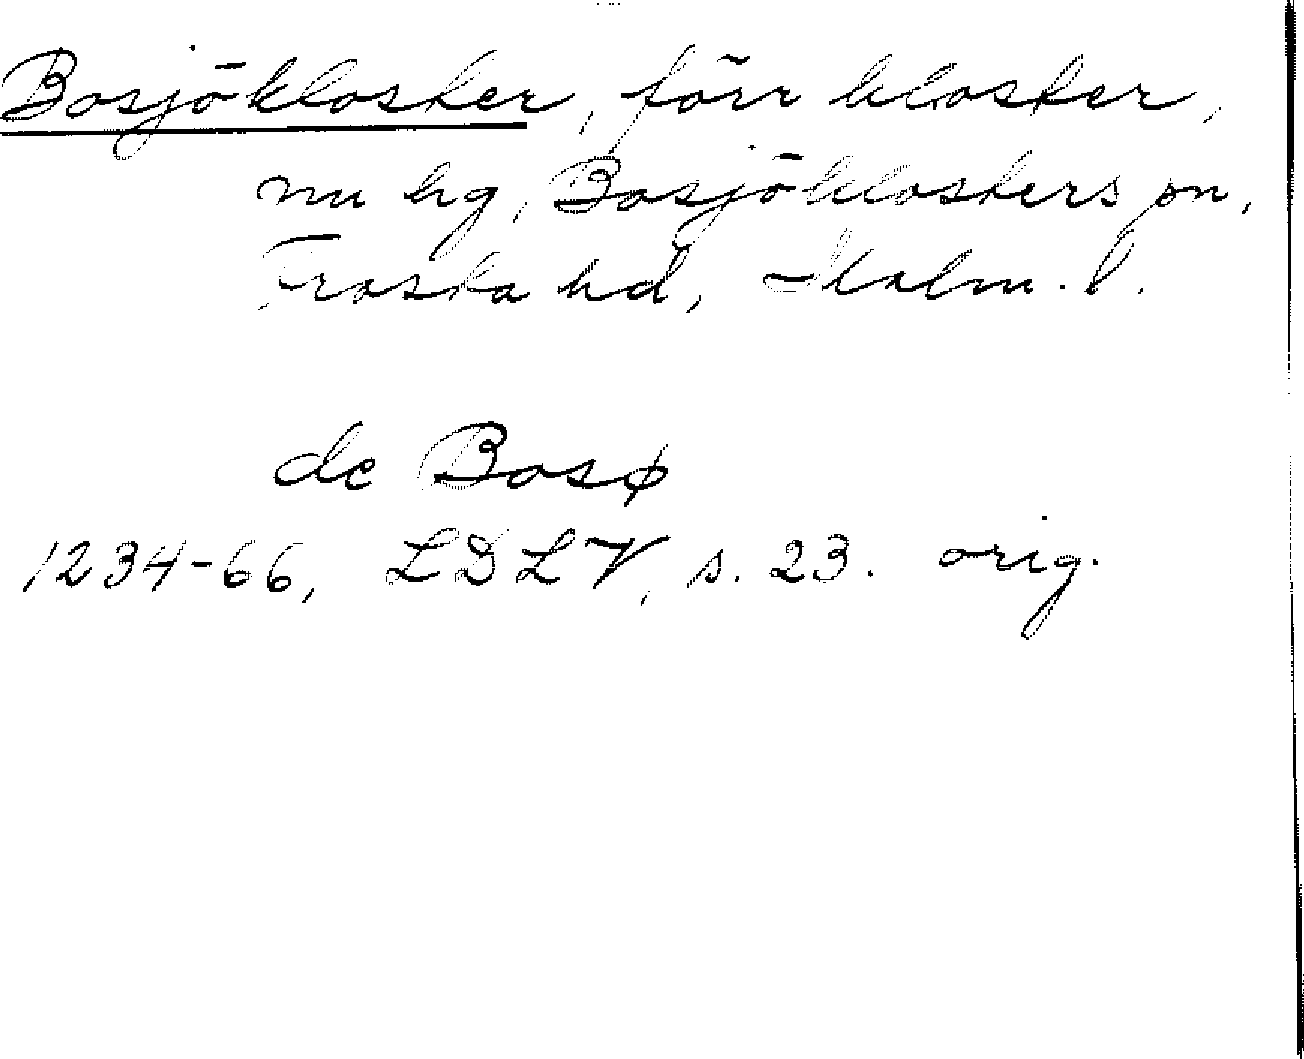 Bosjökloster, förr kloster,
nu hg, Bosjöklosters sn,
Frosta hd, Malm. l.
de Bosø
1234-66, LDLV, s. 23. orig.